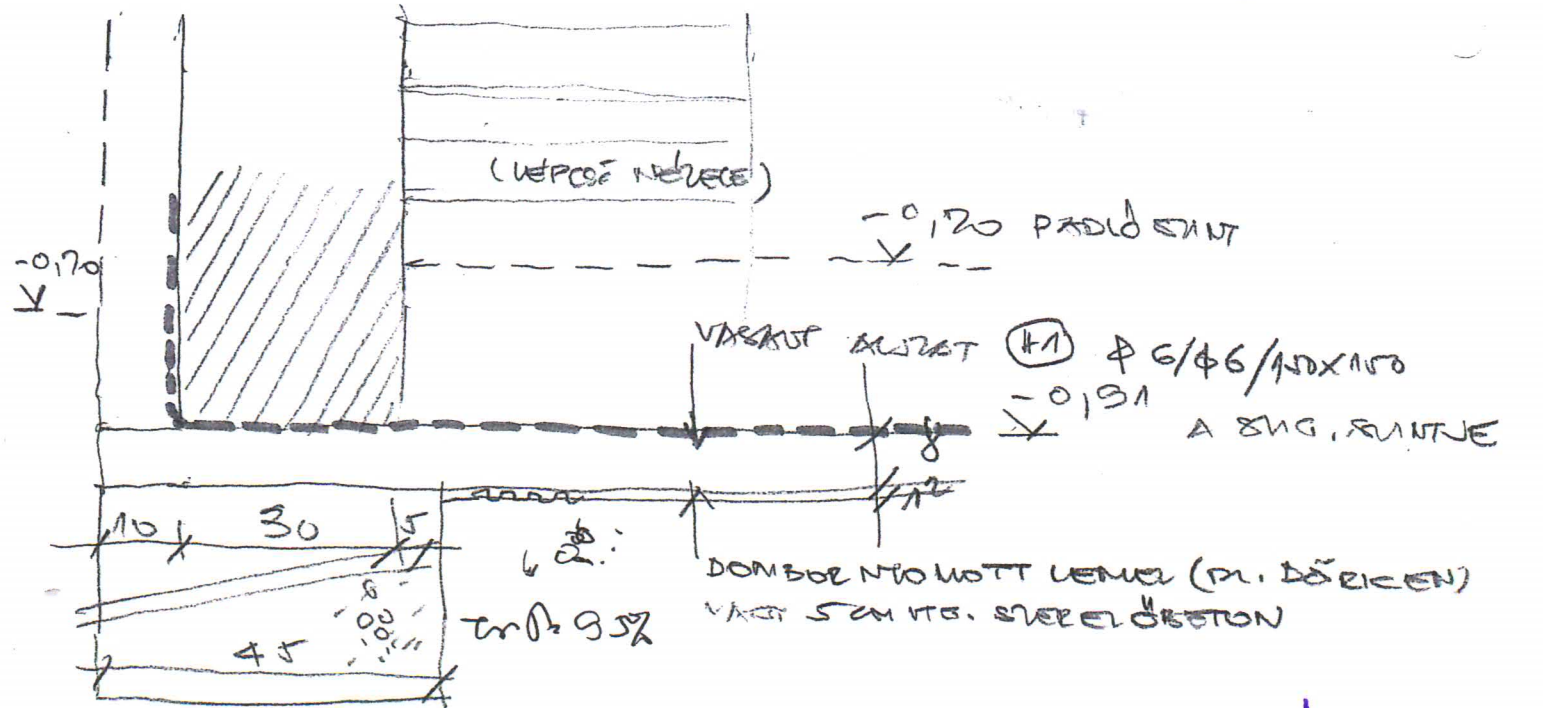 (LÉPCSŐ NÉZETE)
-0,70 PADLÓSZINT
-0,70
VASALT ALJZAT #1 φ6/φ6/150X150
-0,91
A SZIG. SZINTJE
10 30 5
DOMBORNYOMOTT LEMEZ (PL. DÖRKEN)
VAGY 5 CM VTG. SZERELŐBETON
95%
45